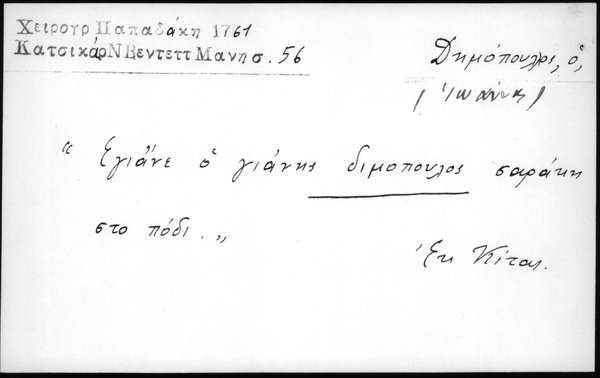 Χειρουρ Παπαδάκη 1761
Κατσικάρ Ν Βεντεττ Μανησ. 56
Δημόπουλος, ὁ,
(Ἰωάννης)
“ Εγιάνε ὁ γιάνης διμοπουλος σαράκη
στο πόδι. „
Ἐκ Κίτας.